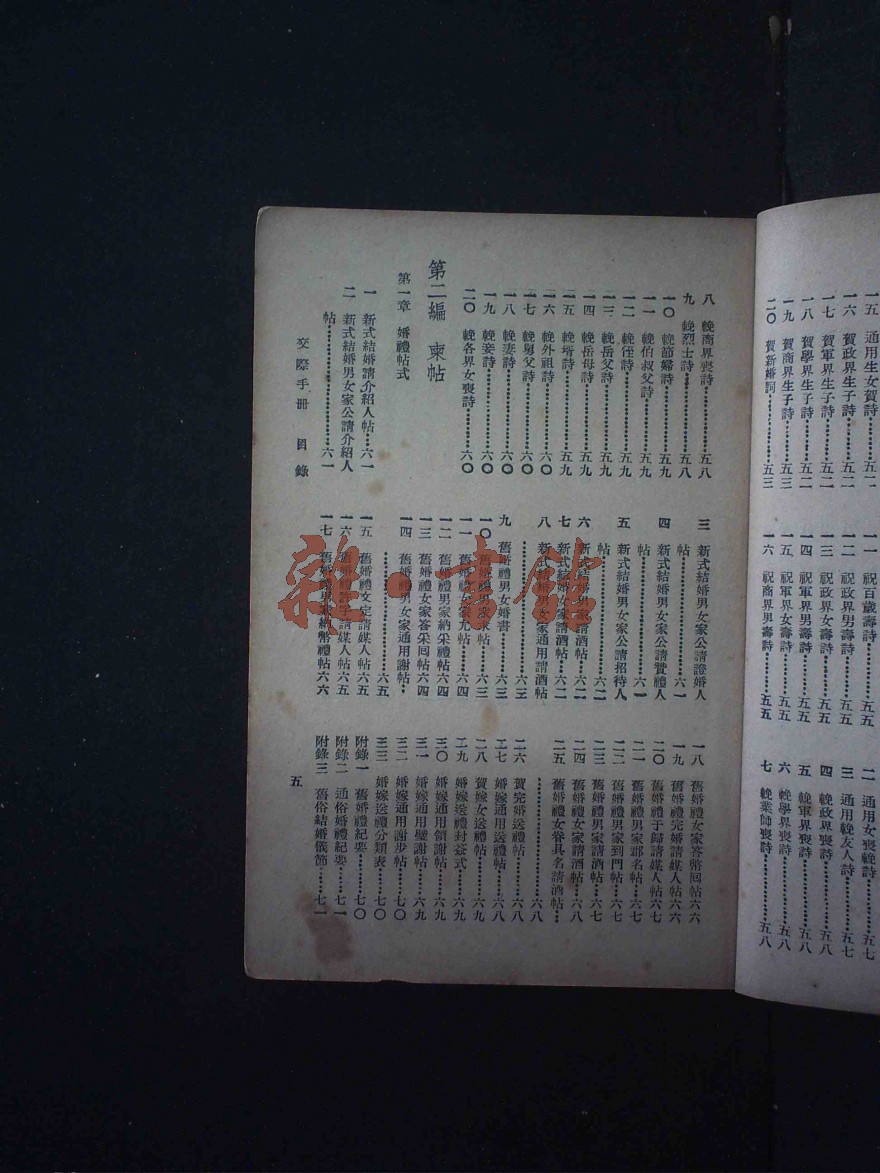 一五　通用生女賀詩…………五二
一六　賀政界生子詩…………五二
一七　賀軍界生子詩…………五二
一八　賀學界生子詩…………五二
一九　賀商界生子詩…………五三
二〇　賀新婚詞…………五三
一一　祝百歲壽詩…………五五
一二　祝政界男壽詩…………五五
一三　祝政界女壽詩…………五五
一四　祝軍界男壽詩…………五五
一五　祝軍界女壽詩…………五五
一六　祝商界男壽詩…………五五
二　通用女喪輓詩…………五七
三　通用輓友人詩…………五七
四　輓政界喪詩…………五八
五　輓軍界喪詩…………五八
六　輓學界喪詩…………五八
七　輓業師喪詩…………五八
八　輓商界喪詩…………五八
九　輓烈士詩…………五八
一〇　輓節婦詩…………五九
一一　輓伯叔父詩…………五九
一二　輓侄詩…………五九
一三　輓岳父詩…………五九
一四　輓岳母詩…………五九
一五　輓壻詩…………五九
一六　輓外祖詩…………六〇
一七　輓舅父詩…………六〇
一八　輓妻詩…………六〇
一九　輓妾詩…………六〇
二〇　輓各界女喪詩…………六〇
第二編　柬帖
第一章　婚禮帖式
一　新式結婚請介紹人帖…六一
二　新式結婚男女家公請介紹人
帖…………六一
三　新式結婚男女家公請證婚人
帖…………六一
四　新式結婚男女家公請贊禮人
帖…………六一
五　新式結婚男女家公請招待人
帖…………六二
六　新式結婚男家請酒帖…六二
七　新式結婚女家請酒帖…六二
八　新式結婚男女家通用請酒帖
…………六三
九　舊婚禮男女婚書…………六三
一〇　舊婚禮男家求帖…………六三
一一　舊婚禮女家允帖…………六四
一二　舊婚禮男家納采禮帖…六四
一三　舊婚禮女家答采回帖…六四
一四　舊婚禮男女家通用謝帖…
…………六五
一五　舊婚禮文定請媒人帖六五
一六　舊婚禮請媒人帖六五
一七　舊婚禮男家納幣禮帖六六
一八　舊婚禮女家答幣回帖六六
一九　舊婚禮完婚請媒人帖六六
二〇　舊婚禮于歸請媒人帖六七
二一　舊婚禮男家邵名帖……六七
二二　舊婚禮男家到門帖……六七
二三　舊婚禮男家請酒帖……六七
二四　舊婚禮女家請酒帖……六八
二五　舊婚禮女眷具名請酒帖…
…………六八
二六　賀完婚送禮帖…………六八
二七　婚嫁通用送禮帖…………六八
二八　賀嫁女送禮帖…………六八
二九　婚嫁送禮封套式…………六九
三〇　婚嫁通用領謝帖…………六九
三一　婚嫁通用璧謝帖…………六九
三二　婚嫁通用謝步帖…………七〇
三三　婚嫁送禮分類表…………七〇
附錄一　舊婚禮紀要…………七〇
附錄二　通俗婚禮紀要…………七一
附錄三　舊俗結婚儀節…………七一
交際手冊　目錄
五
雜·書館